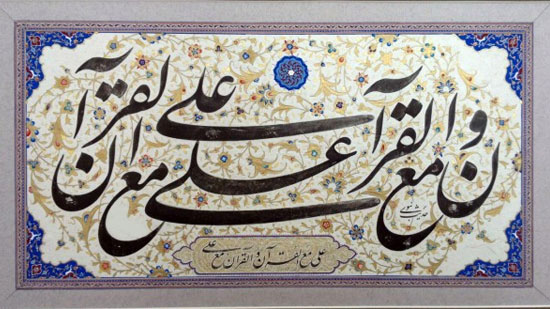 علی مع القرآن والقرآن مع علی
علی مع القرآن والقرآن مع علی